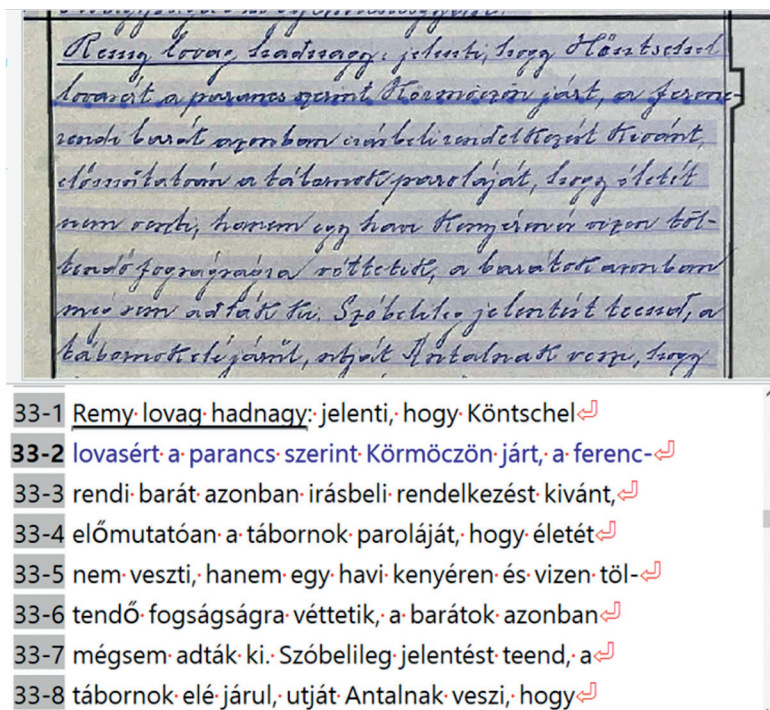 Remy lovag hadnagy: jelenti, hogy Köntschel
lovasért a parancs szerint Körmöczön járt, a ferenc-
rendi barát azonban irásbeli rendelkezést kivánt,
előmutatóan a tábornok paroláját, hogy életét
nem veszti, hanem egy havi kenyéren és vizen töl-
tendő fogságságra véttetik, a barátok azonban
mégsem adták ki. Szóbelileg jelentést teend, a
tábornok elé járul, utját Antalnak veszi, hogy
33-1 Remy lovag hadnagy: jelenti, hogy Köntschel
33-2 lovasért a parancs szerint Körmöczön járt, a ferenc-
33-3 rendi barát azonban irásbeli rendelkezést kivánt,
33-4 előmutatóan a tábornok paroláját, hogy életét
33-5 nem veszti, hanem egy havi kenyéren és vizen töl-
33-6 tendő fogságságra véttetik, a barátok azonban
33-7 mégsem adták ki. Szóbelileg jelentést teend, a
33-8 tábornok elé járul, utját Antalnak veszi, hogy